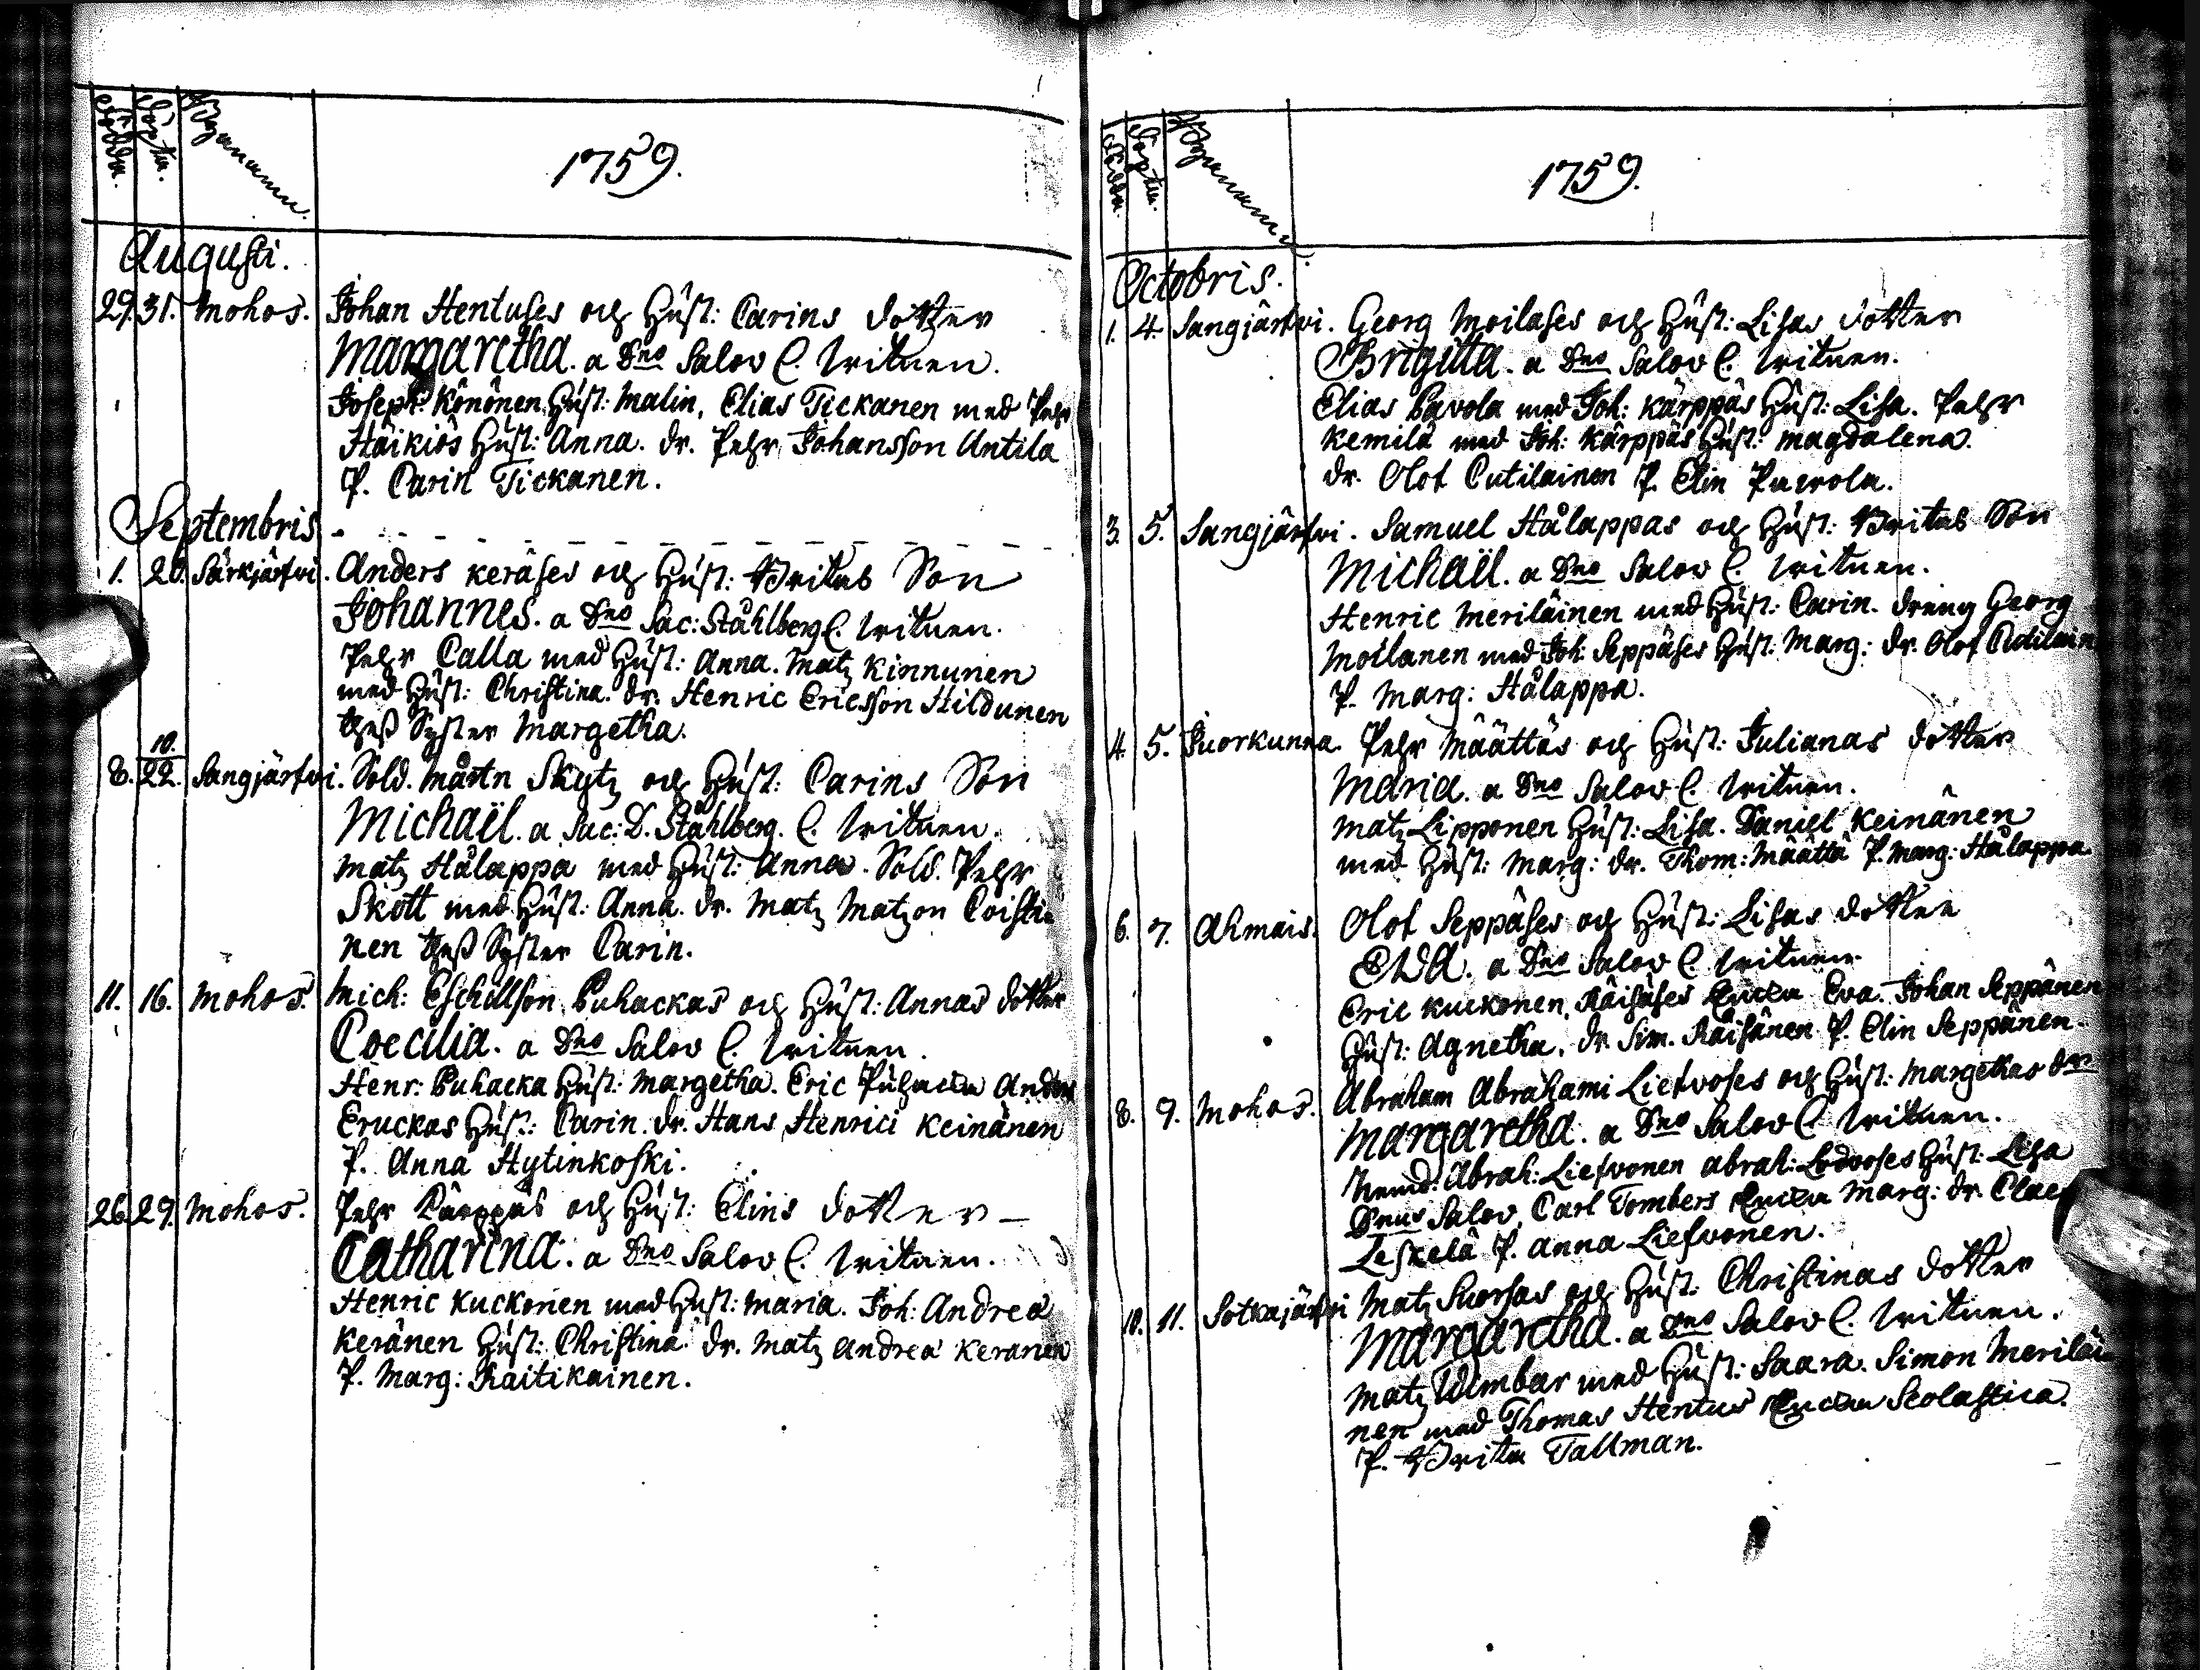 Födda. Döpta. Byanamn.
1759.
Augusti.
29. 31. Mohos. Johan Hentuses och Hust: Carins dotter
Margaretha. a Dno Salov C. Witnen.
Joseph Könönen Hust: Malin, Elias Tickanen med Pehr
Häikiös Hust: Anna. dr. Pehr Johansson Antila
P. Carin Tickanen.
Septembris
1. 20. Särkjärfvi. Anders Keräses och Hust: Britas Son
Johannes. a Dno Sac: Ståhlberg C. Witnen.
Pehr Calla med Hust: Anna. Matz Kinnunen
med Hust: Christina. dr. Henric Ericsson Hildunen
thess Syster Margetha.
10.
8. 22. Sangjärfvi. Sold. Mårtn Skytz och Hust: Carins Son
Michaël. a Sac: D. Ståhlberg. C. Witnen.
Matz Hålappa med Hust: Anna. Sold. Pehr
Skött med Hust: Anna. dr. Matz Matzon Coisti-
nen thess Syster Carin.
11. 16. Mohos. Mich: Eschillson Puhackas och Hust: Annas dotter
Coecilia. a Dno Salov C. Witnen.
Henr: Puhacka Hust: Margetha. Eric Puhacka Anders
Eruckas Hust: Carin. dr. Hans Henrici Keinänen
P. Anna Hytinkoski.
26. 29. Mohos. Pehr Kärppäs och Hust: Elins dotter
Catharina. a Dno Salov C. Witnen.
Henric Kuckonen med Hust: Maria. Joh: Andreä
Keränen Hust: Christina. dr. Matz Andreä Keränen
P. Marg: Raitikainen.
Födda. Döpta. Byanamn.
1759.
Octobris.
1. 4. Sangjärfvi. Georg Moilases och Hust: Lisas dotter
Brigitta. a Dno Salov C. Witnen.
Elias Pavola med Joh: Kärppäs Hust: Lisa. Pehr
Kemilä med Joh: Kärppäs Hust: Magdalena.
dr. Olof Cutilainen P. Elin Pavola.
3. 5. Sangjärfvi. Samuel Hålappas och Hust: Britas Son
Michaël. a Dno Salov C. Witnen.
Henric Meriläinen med Hust: Carin. dreng Georg
Moilanen med Joh: Seppäses Hust: Marg: dr. Olof Cutilain
P. Marg: Hålappa.
4. 5. Juorkunna. Pehr Määttäs och Hust: Julianas dotter
Maria. a Dno Salov C. Witnen.
Matz Lipponen Hust: Lisa. Daniel Keinänen
med Hust: Marg: dr. Thom: Määttä P. Marg: Hålappa.
6. 7. Ahmais. Olof Seppäses och Hust: Lisas dotter
Ewa. a Dno Salov C. Witnen.
Eric Kuckonen, Räisäses Enkia Eva. Johan Seppänen
Hust: Agnetha. dr. Sim. Räisänen P. Elin Seppänen.
8. 9. Mohos. Abraham Abrahami Liefvoses och Hust: Margethas dr
Margaretha. a Dno Salov C. Witnen.
Nemd: Abrah: Liefvonen Abrah: Hust: Lisa
Dnus Salov. Carl Tombers Enkia Marg: dr. Claes
Leskelä P. Anna Liefvonen.
10. 11. Sotkajärfvi Matz Suorsas och Hust: Christinas dotter
Margaretha. a Dno Salov C. Witnen.
Matz Wimbar med Hust: Saara. Simon Meriläi
nen med Thomas Hentus Enkia Scolastica.
P. Brita Tallman.